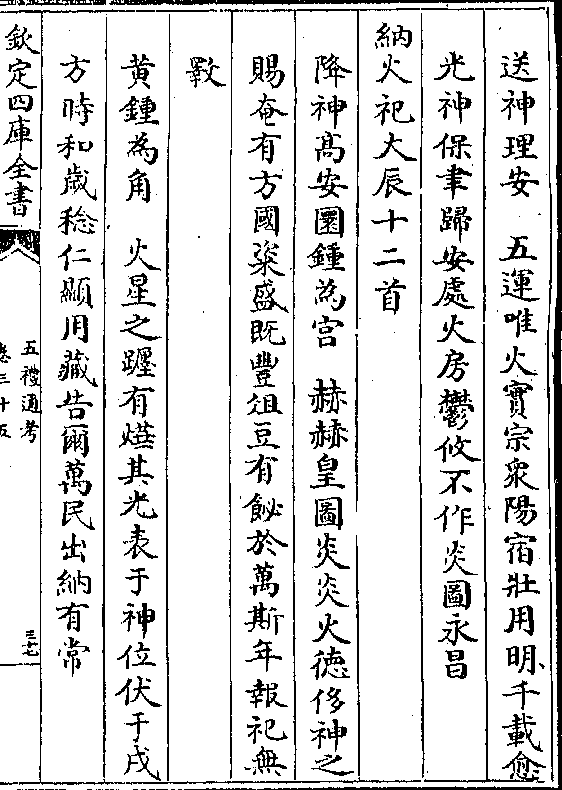 送神理安　五運唯火實宗衆陽宿壯用明千載愈
光神保聿歸安處火房鬱攸不作炎圖永昌
納火祀大辰十二首
降神髙安圜鍾為宫　赫赫皇圖炎炎火徳侈神之
賜奄有方國粢盛既豐俎豆有飶於萬斯年報祀無
斁
黄鍾為角　火星之躔有爗其光表于神位伏于戌
方時和歲稔仁顯用藏告爾萬民出納有常
欽定四庫全書
五禮通考
卷三十五
三七